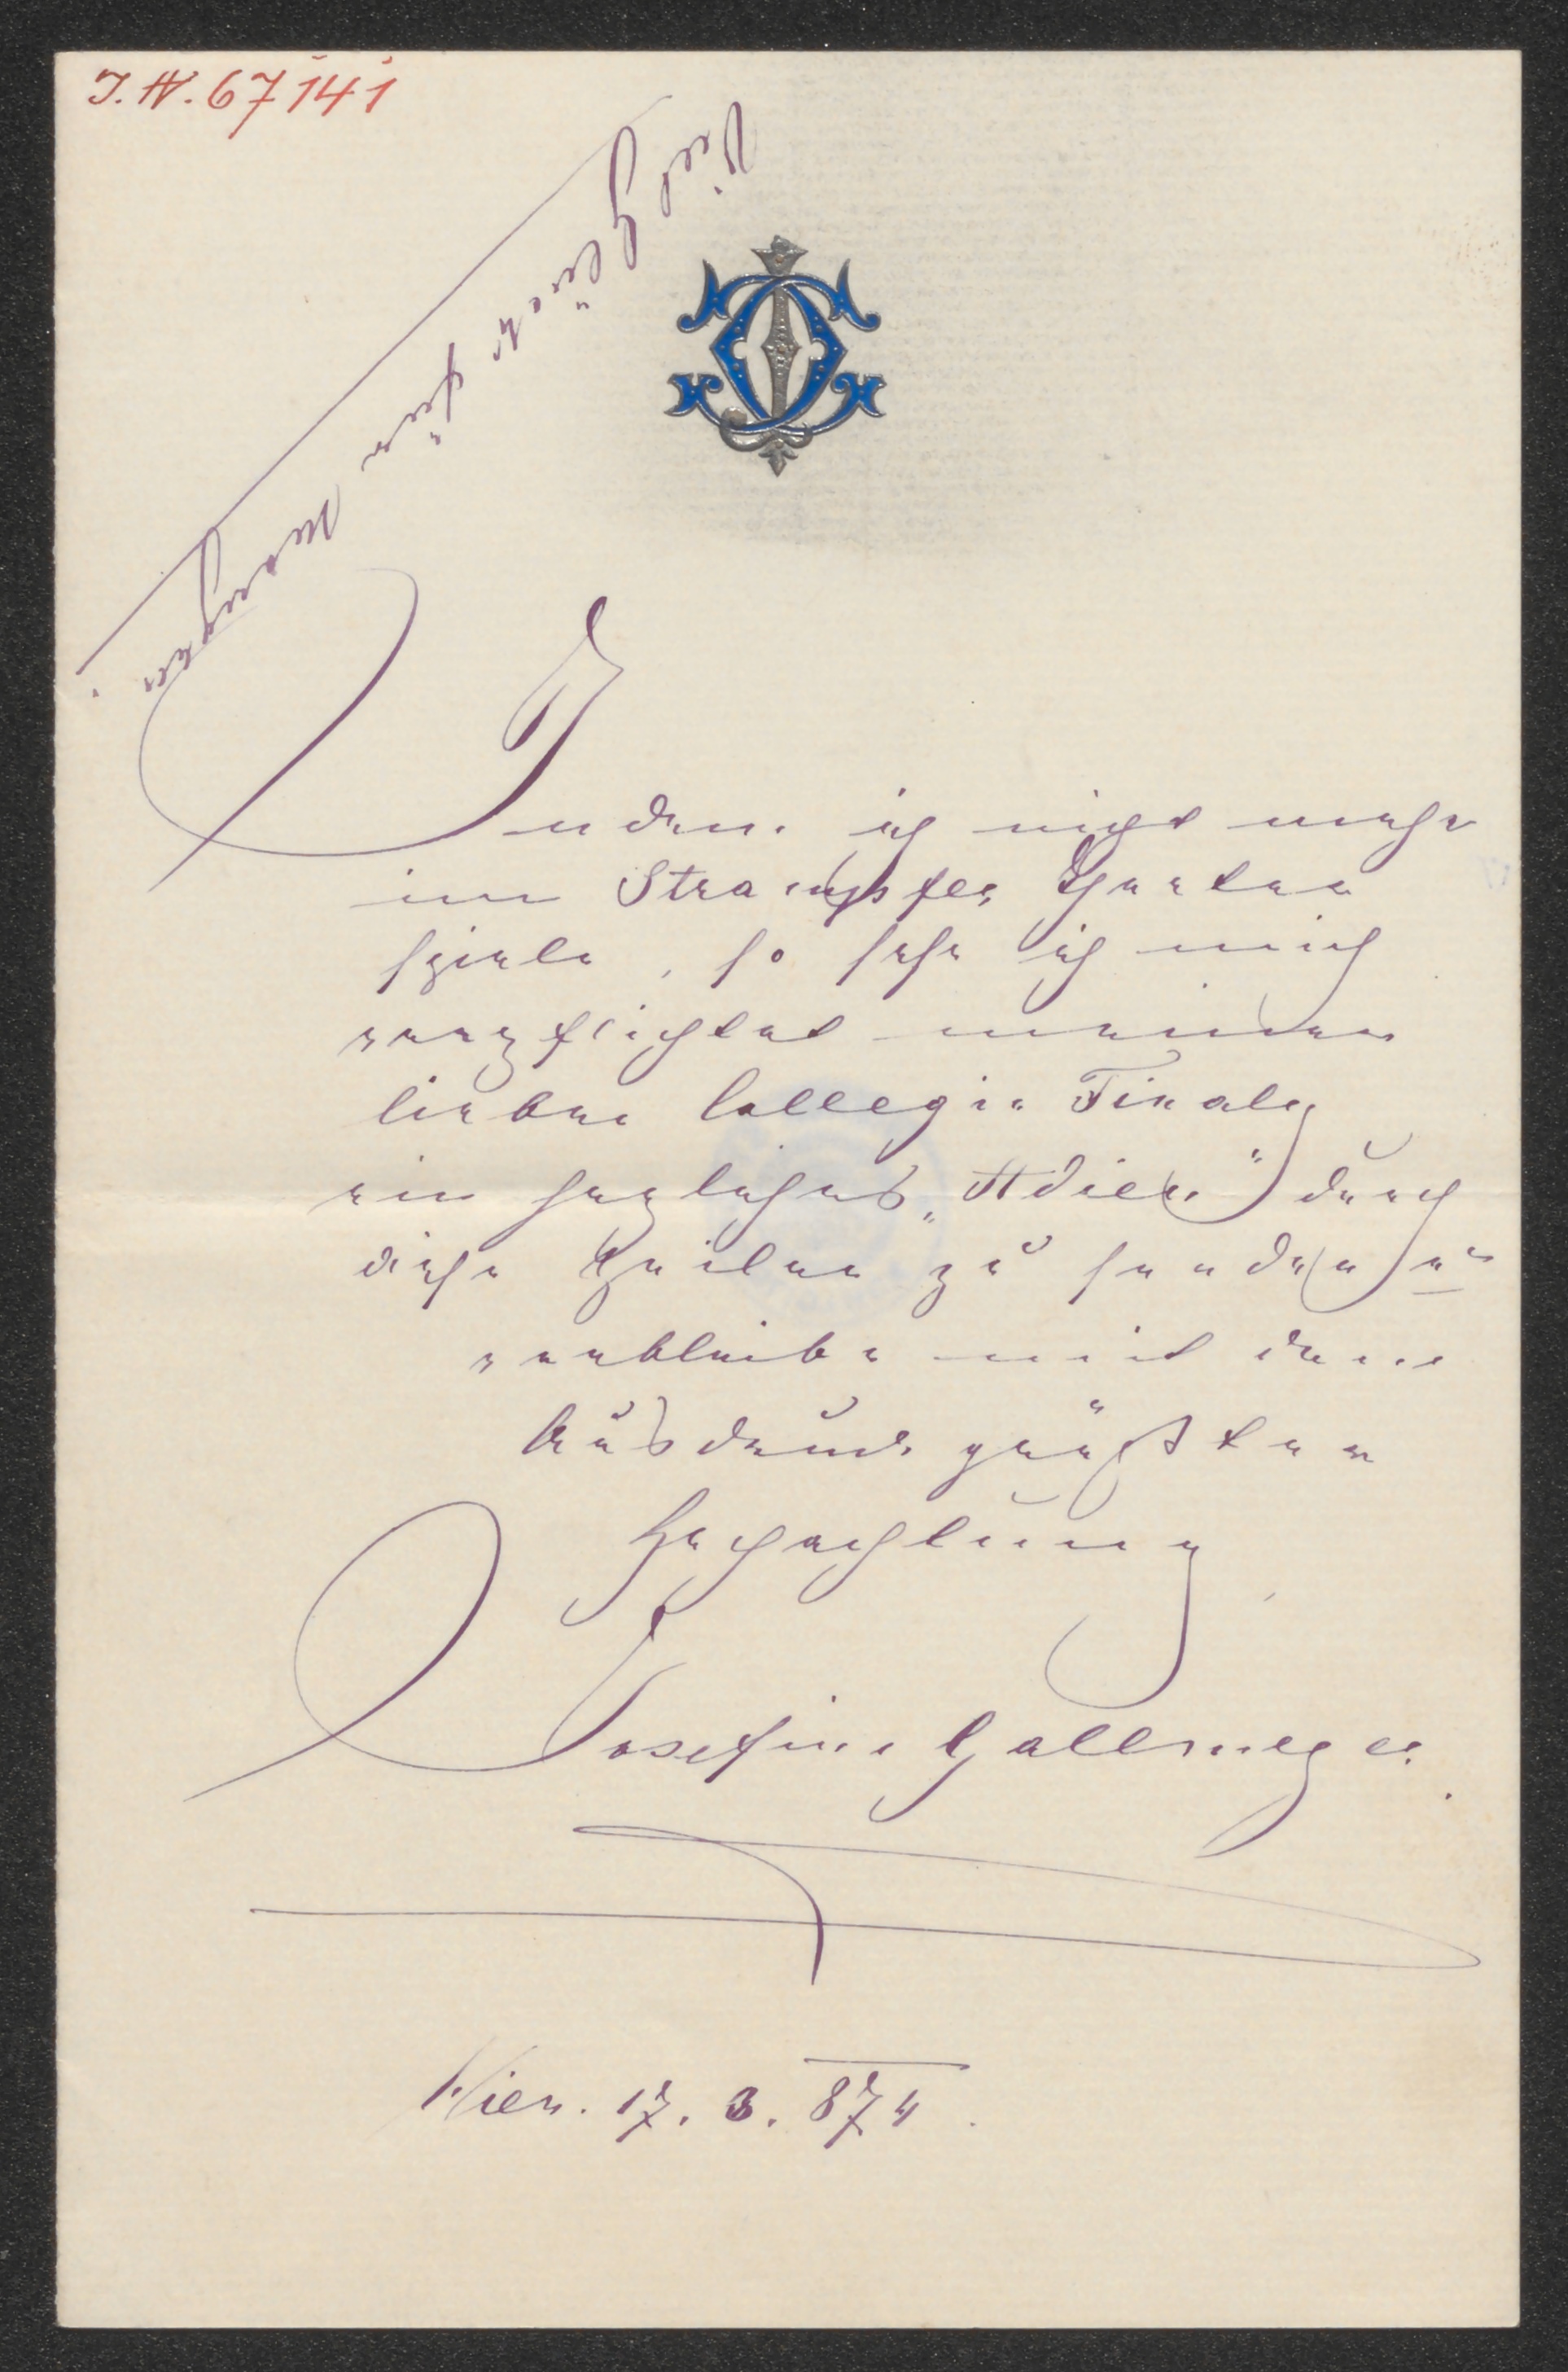 J.N. 67141
Viel Glück für morgen.
Indem ich nicht mehr
im Strampfer Theater
spiele, so sehe ich mich
verpflichtet meiner
lieben Collegin Finaly
ein herzliches „Adieu" durch
diese Zeilen zu senden u
verbleibe mit dem
Ausdruck größter
Hochachtung
Josefine Gallmeyer.
Wien. 17. 3. 874.